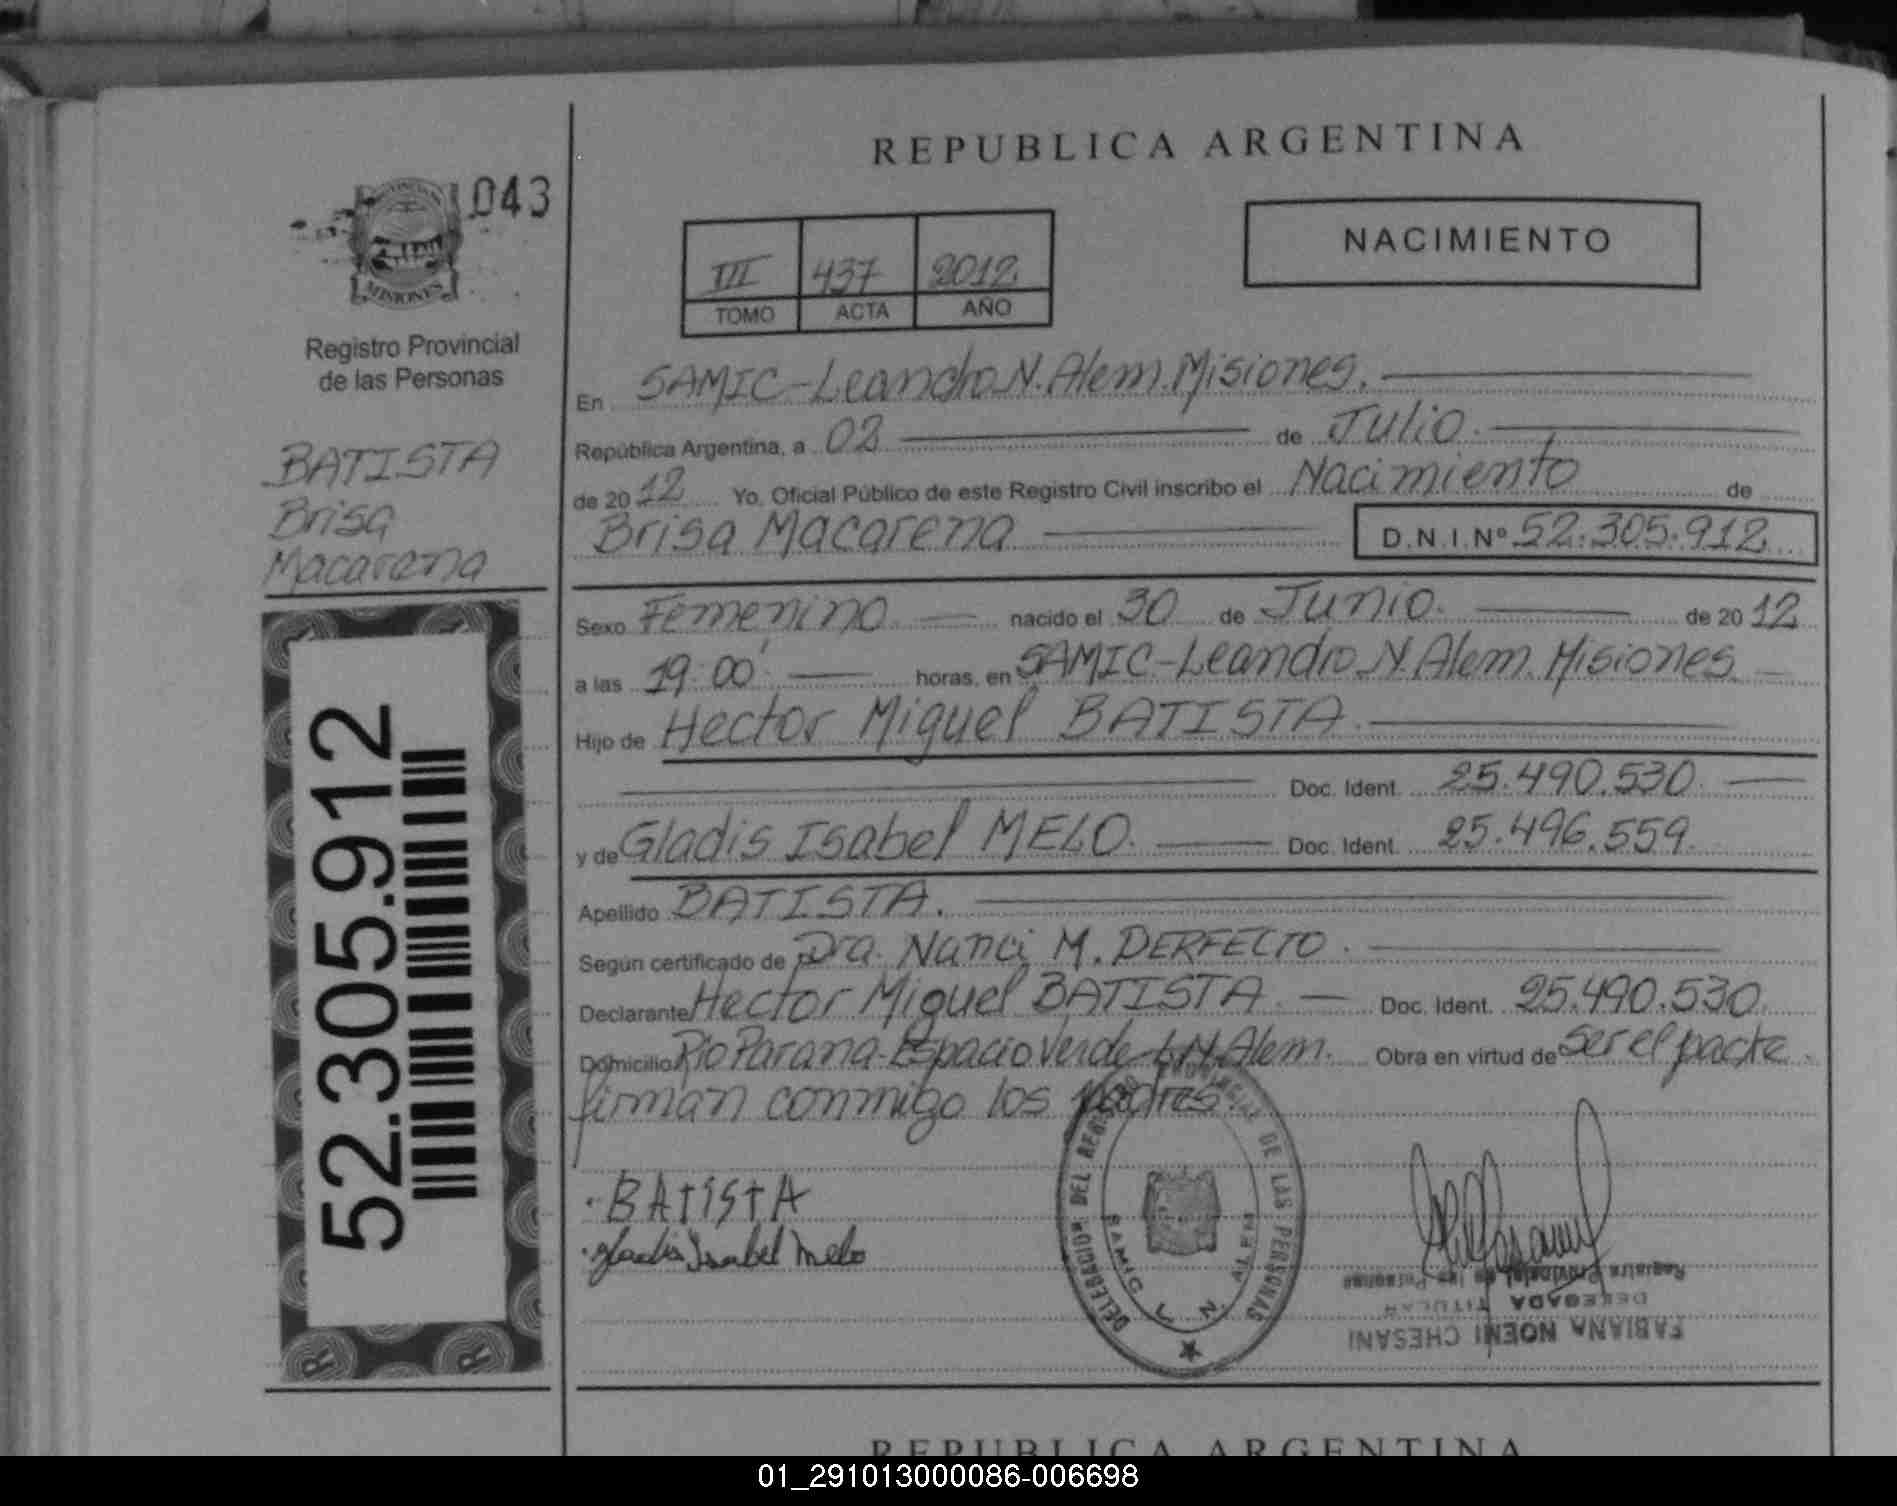 REPUBLICA ARGENTINA
043
MISIONES
Registro Provincial
de las Personas
NACIMIENTO
III 437 2012
TOMO ACTA AÑO
BATISTA
Brisa
Macarena
52.305.912
En SAMIC-Leandro N. Alem. Misiones.
República Argentina, a 02 de Julio.
de 2012 Yo, Oficial Público de este Registro Civil inscribo el Nacimiento de
Brisa Macarena D.N.I.Nº 52.305.912
Sexo Femenino. nacido el 30 de Junio. de 2012
a las 19:00' horas, en SAMIC-Leandro N. Alem. Misiones
Hijo de Hector Miguel BATISTA.
Doc. Ident. 25.490.530
y de Gladis Isabel MELO. Doc. Ident. 25.496.559.
Apellido BATISTA.
Según certificado de Dra. Nanci M. DERFECTO.
Declarante Hector Miguel BATISTA. Doc. Ident. 25.490.530.
Domicilio Rio Parana-Espacio Verde-L.N.Alem. Obra en virtud de ser el padre.
firman conmigo los padres.
BATISTA
Gladis Isabel Melo
DELEGACION DEL REGISTRO PROVINCIAL DE LAS PERSONAS
SAMIC L. N. ALEM
Registro Provincial de las Personas
DELEGADA TITULAR
FABIANA NOEMI CHESANI
REPUBLICA ARGENTINA
01_291013000086-006698